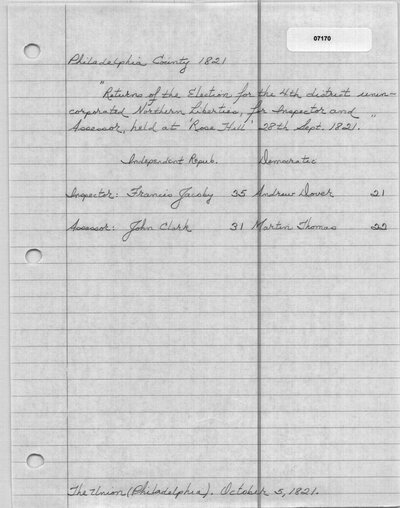 07170
Philadelphia County 1821
"Returns of the Election for the 4th district unin-
corporated Northern Liberties, for Inspector and
Assessor, held at 'Rose Hill' 28th Sept. 1821."
Independent Repub. Democratic
Inspector: Francis Jacoby 35 Andrew Dover 21
Assessor: John Clark 31 Martin Thomas 22
The Union (Philadelphia). October 5, 1821.